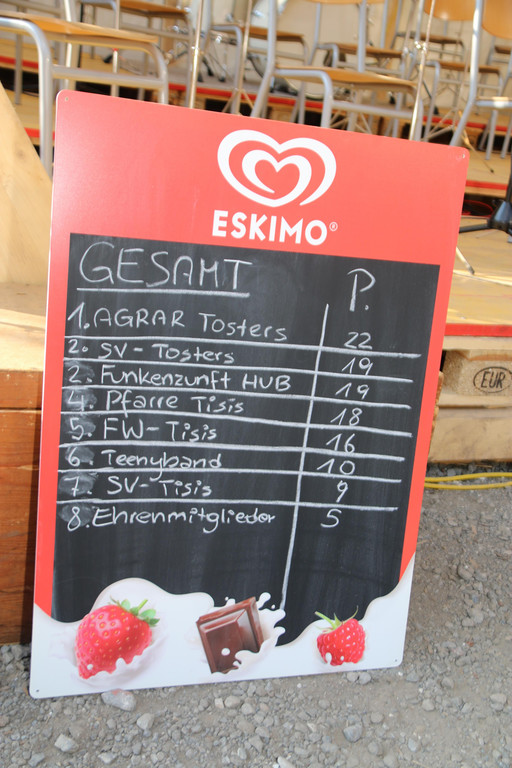 ESKIMO®
GESAMT P.
1. AGRAR Tosters 22
2. SV-Tosters 19
2. Funkenzunft HUB 19
4. Pfarre Tisis 18
5. FW-Tisis 16
6. Teenyband 10
7. SV-Tisis 9
8. Ehrenmitglieder 5
EUR